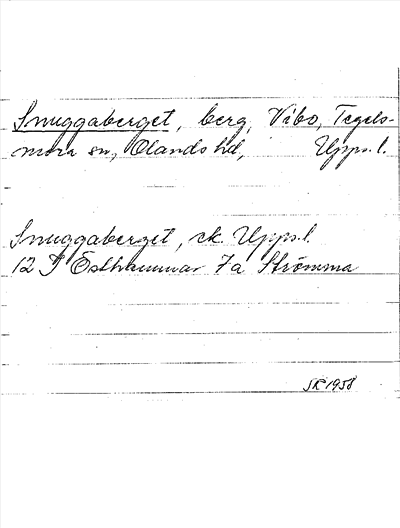 Snuggaberget, berg, Vibo, Tegels-
mora sn, Olands hd, Upps. l.
Snuggaberget, ek. Upps. l.
12 I Östhammar 7a Strömma
SR 1958